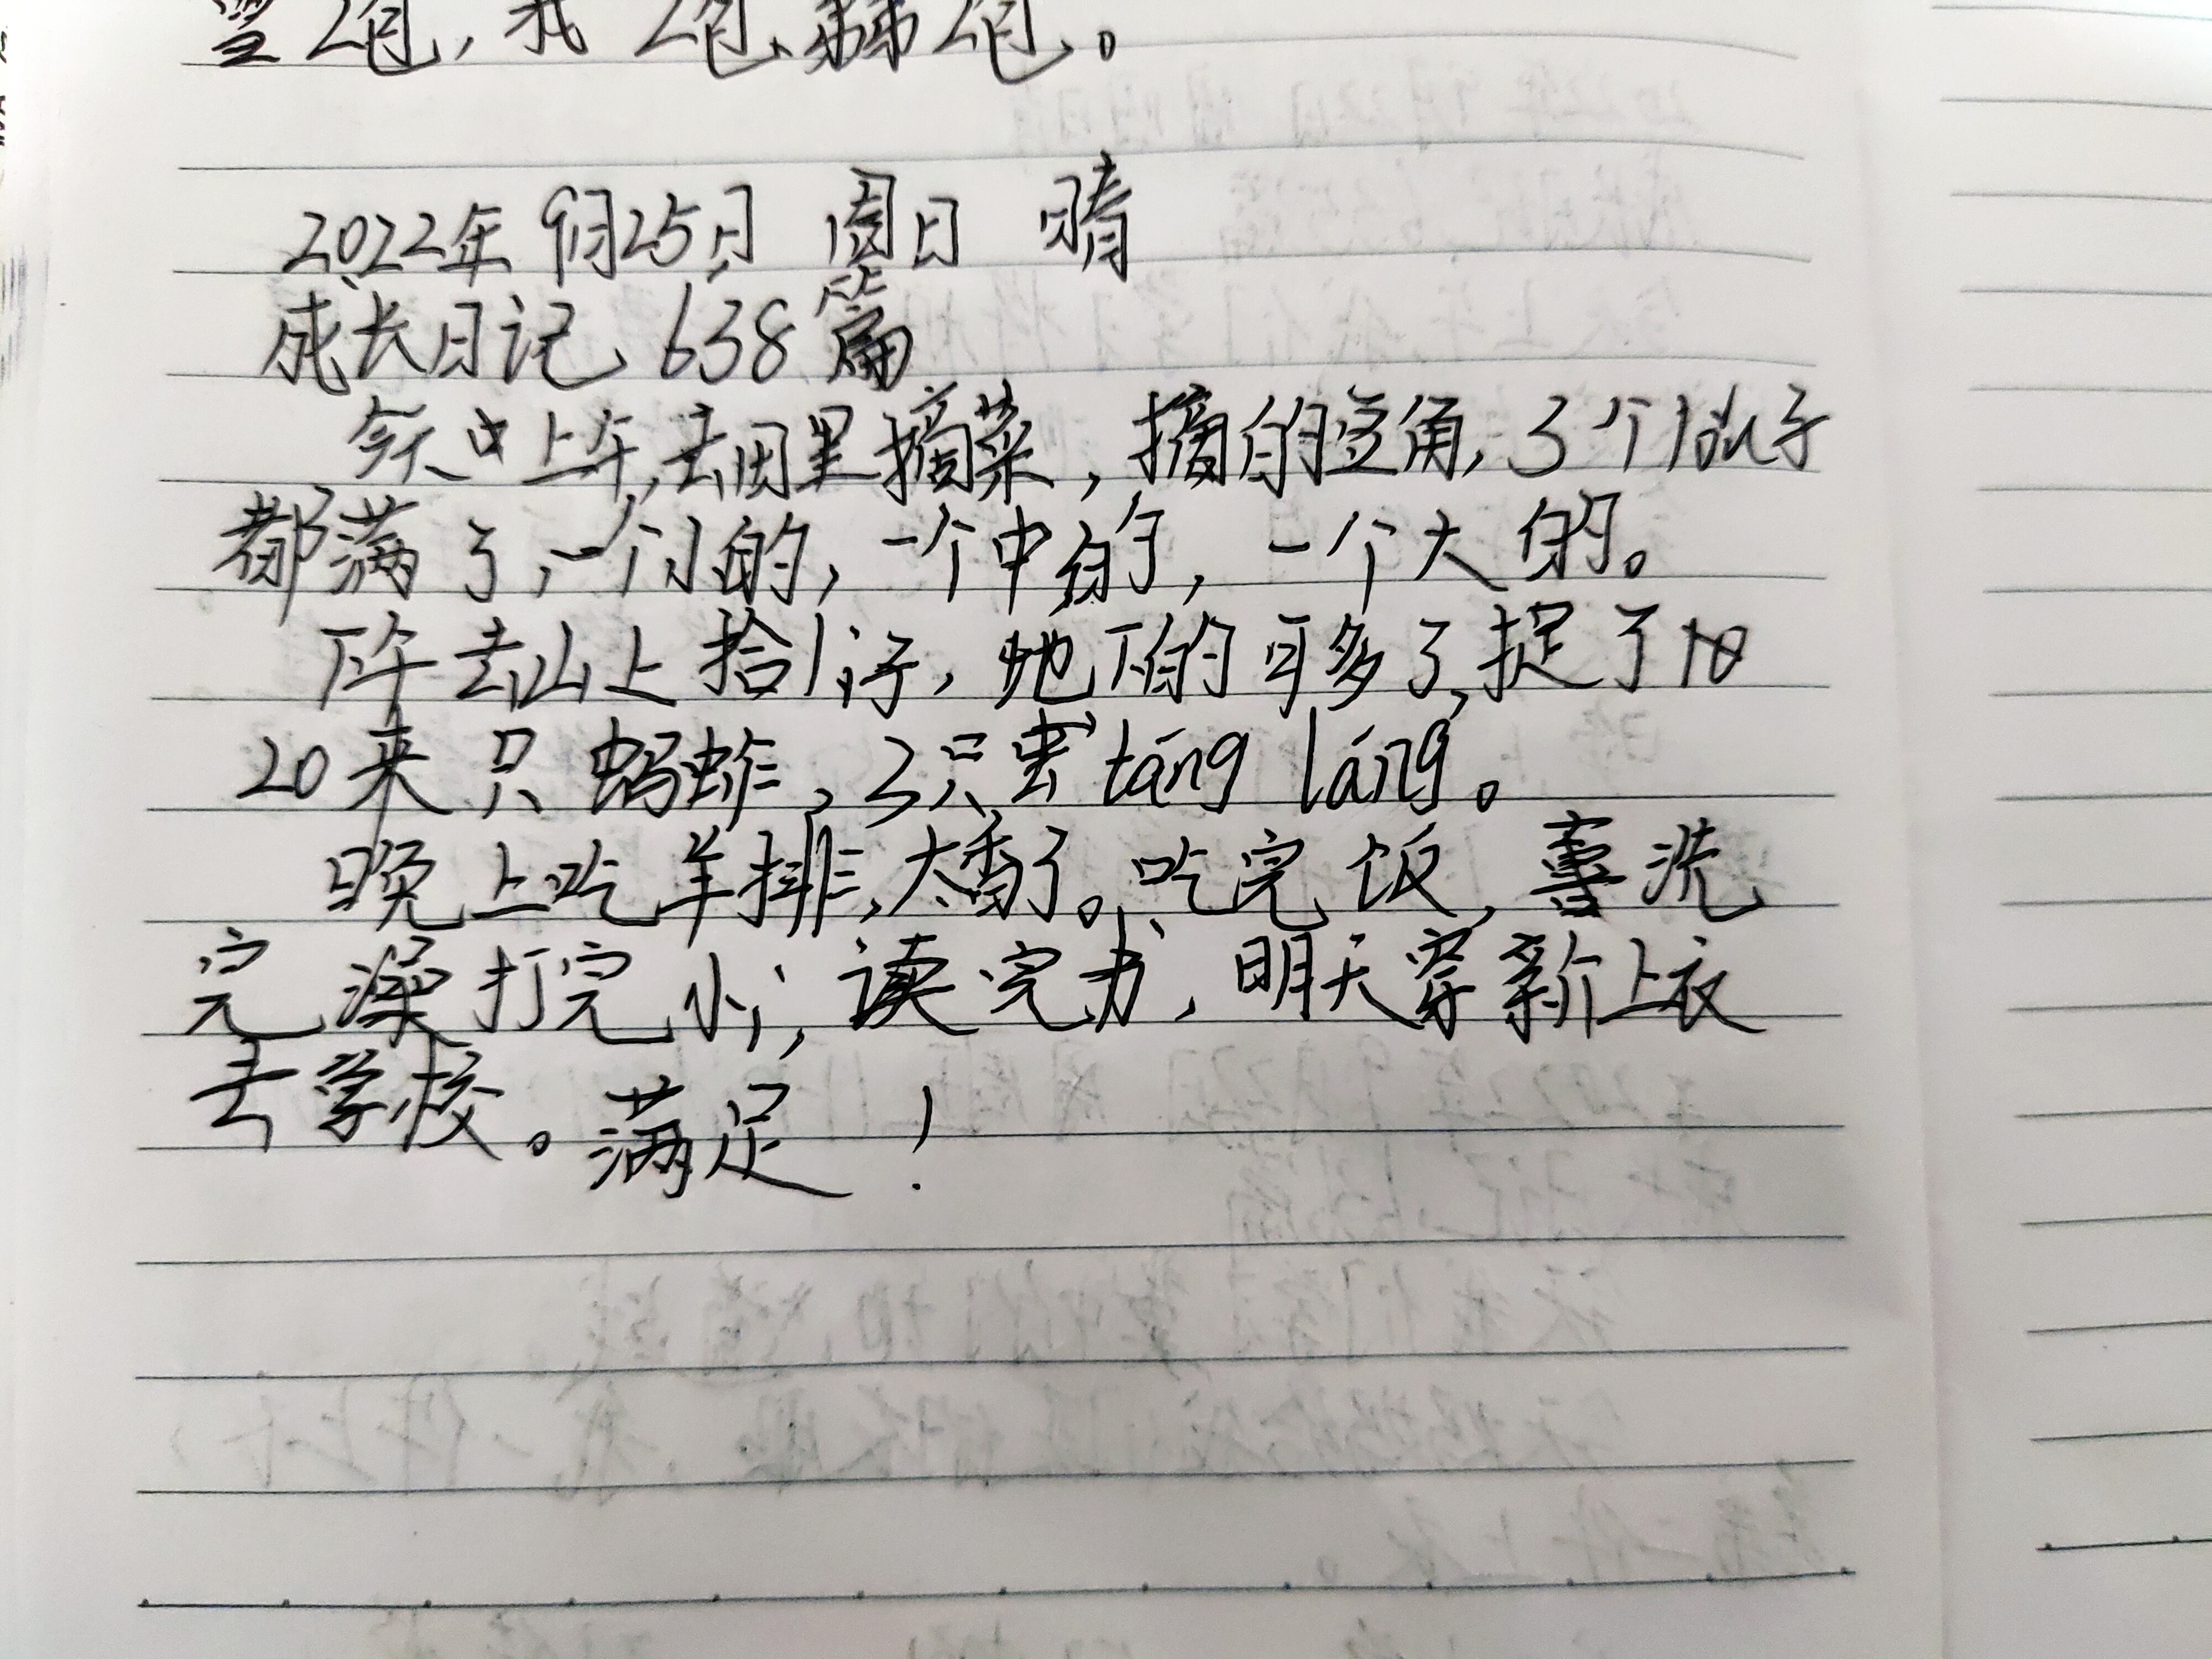 2包,我2包、弟弟2包。
2022年9月25日 周日 晴
成长日记、638篇
今天中上午,去田里摘菜,摘的豆角,3个 子
都满了,一个小的,一个中的,一个大的。
下午去山上拾 子,地下的可多了,捉了10
20来只蚂蚱,3只 táng láng。
晚上吃羊排,太香了。吃完饭, 洗
完澡打完小i,读完书,明天穿新上衣
去学校。满足!